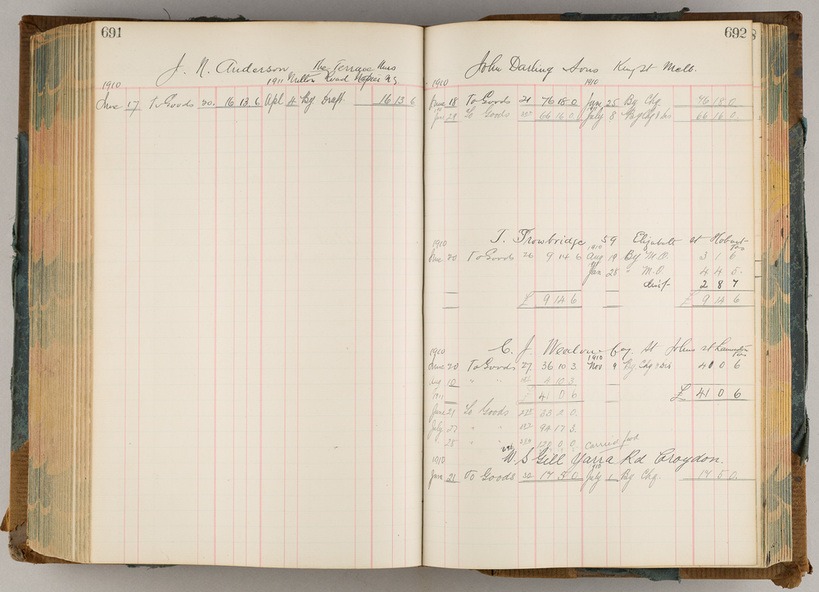 691
J. N. Anderson The Terrace
1911 Road Napier NZ
1910
June 17 To Goods 20. 16 13 6 Apl 4 By Draft 16 13 6
692
John Darling Sons King St Melb.
1910 1910
June 18 To Goods 21 76 18 0 June 25 By Chq. 76 18 0
28 To Goods 66 16 0 July 8 66 16 0
T. Trowbridge 59 Elizabeth St Hobart
Tas
1910 1910
June 20 To Goods 26 9 14 6 Aug 19 By M.O. 3 1 6
Jan 28 " M.O 4 4 5
2 8 7
£ 9 14 6 £ 9 14 6
C. J. St Johns St Launceston
Tas
1910 1910
June 20 To Goods 27 36 10 3 Nov 9 By Chq 41 0 6
Aug 10 " " 4 10 3
1911 £ 41 0 6 £ 41 0 6
June 21 To Goods 33 0 0
July 27 " " 94 17 3
28 " " 0 0 carried fwd
W. S Gill Yarra Rd Croydon.
1910 1910
June 21 To Goods 17 5 0 July 1 By Chq. 17 5 0